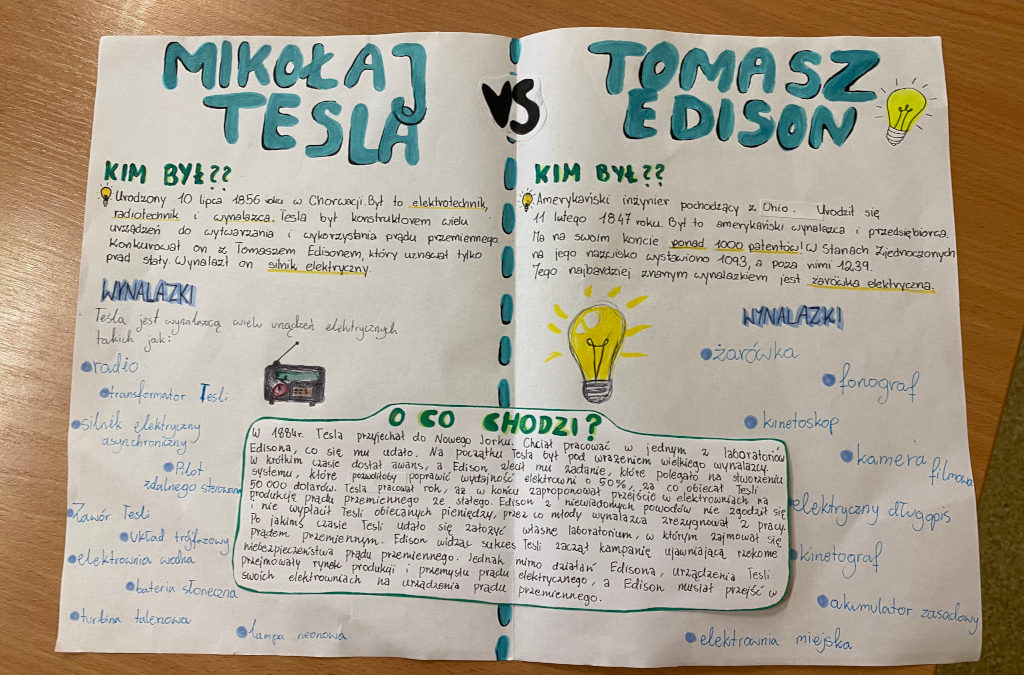 MIKOŁAJ
TESLA
VS
TOMASZ
EDISON
KIM BYŁ??
Urodzony 10 lipca 1856 roku w Chorwacji. Był to elektrotechnik,
radiotechnik i wynalazca. Tesla był konstruktorem wielu
urządzeń do wytwarzania i wykorzystania prądu przemiennego.
Konkurował on z Tomaszem Edisonem, który uznawał tylko
prąd stały. Wynalazł on silnik elektryczny.
WYNALAZKI
Tesla jest wynalazcą wielu urządzeń elektrycznych
takich jak:
radio
transformator Tesli
silnik elektryczny
asynchroniczny
Pilot
zdalnego sterowania
Zawór Tesli
układ trójfazowy
elektrownia wodna
bateria słoneczna
turbina talerzowa
lampa neonowa
KIM BYŁ??
Amerykański inżynier pochodzący z Ohio. Urodził się
11 lutego 1847 roku. Był to amerykański wynalazca i przedsiębiorca.
Ma na swoim koncie ponad 1000 patentów! W Stanach Zjednoczonych
na jego nazwisko wystawiono 1093, a poza nimi 1239.
Jego najbardziej znanym wynalazkiem jest żarówka elektryczna.
WYNALAZKI
żarówka
fonograf
kinetoskop
kamera filmowa
elektryczny długopis
kinetograf
akumulator zasadowy
elektrownia miejska
O CO CHODZI?
W 1884r. Tesla przyjechał do Nowego Jorku. Chciał pracować w jednym z laboratoriów
Edisona, co się mu udało. Na początku Tesla był pod wrażeniem wielkiego wynalazcy.
W krótkim czasie dostał awans, a Edison zlecił mu zadanie, które polegało na stworzeniu
systemu, które pozwoliłoby poprawić wydajność elektrowni o 50%, za co obiecał Tesli
50 000 dolarów. Tesla pracował rok, aż w końcu zaproponował przejście w elektrowniach na
produkcję prądu przemiennego ze stałego. Edison z niewiadomych powodów nie zgodził się
i nie wypłacił Tesli obiecanych pieniędzy, przez co młody wynalazca zrezygnował z pracy.
Po jakimś czasie Tesli udało się założyć własne laboratorium, w którym zajmował się
prądem przemiennym. Edison widząc sukces Tesli zaczął kampanię ujawniającą rzekome
niebezpieczeństwa prądu przemiennego. Jednak mimo działań Edisona, urządzenia Tesli
przejmowały rynek produkcji i przemysłu prądu elektrycznego, a Edison musiał przejść w
swoich elektrowniach na urządzenia prądu przemiennego.